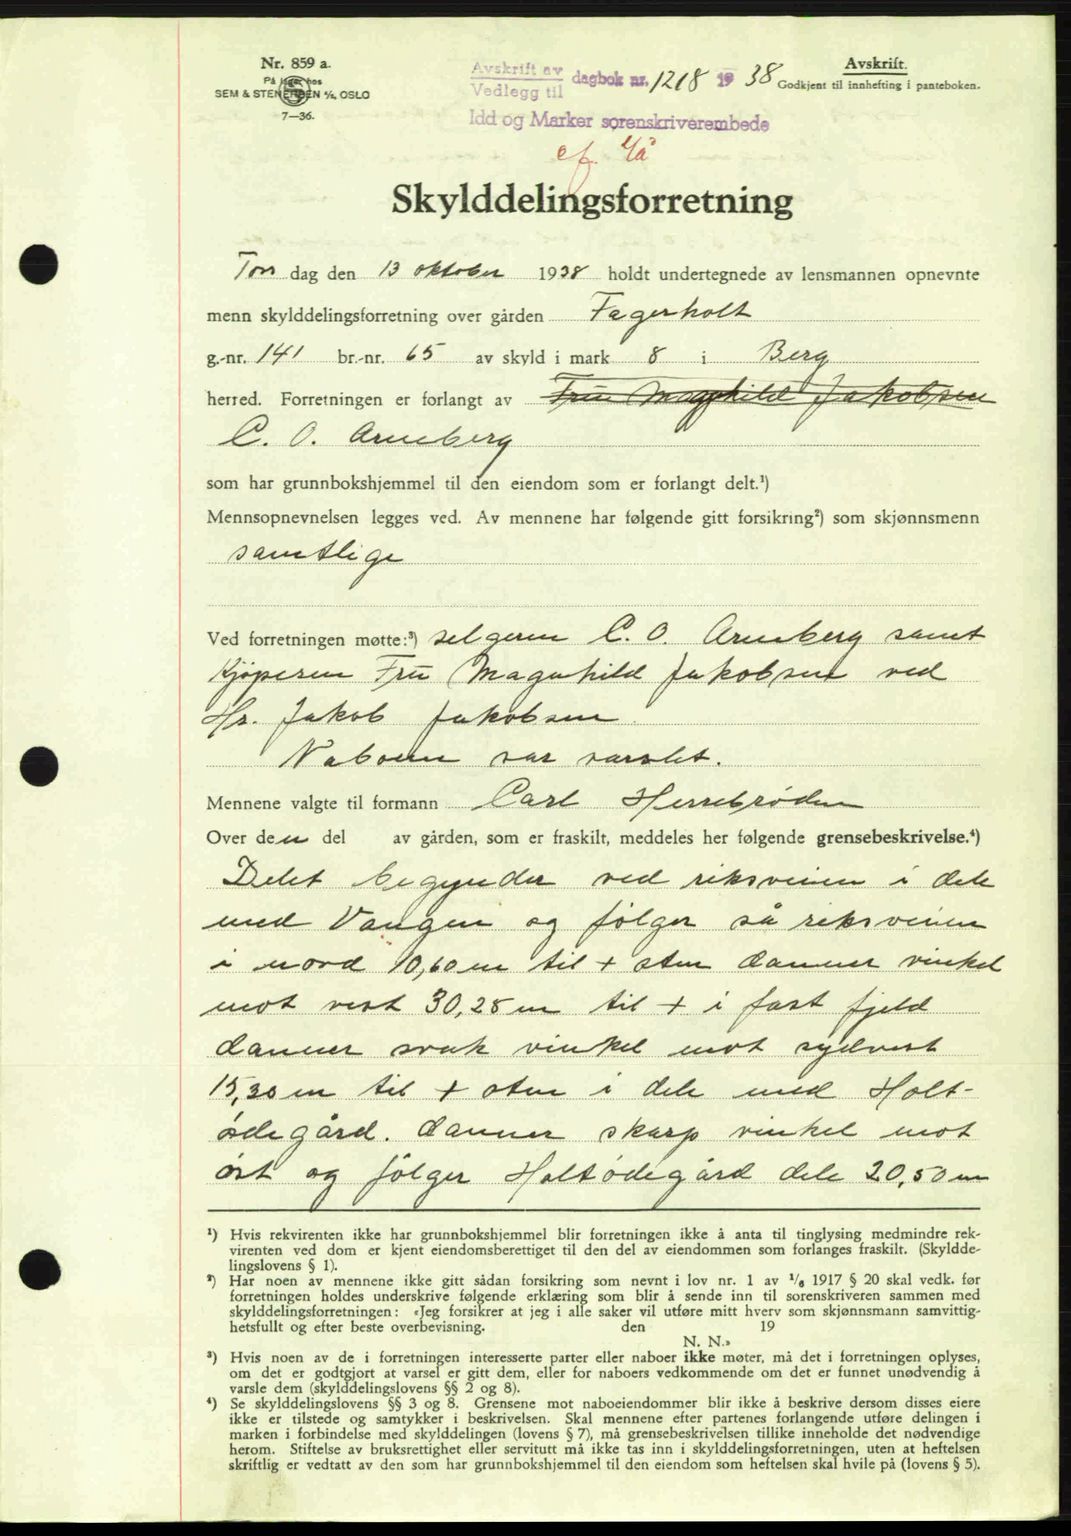 Nr. 859 a.
På lager hos
SEM & STENERSEN A/S, OSLO
7—36.
Avskrift av
Vedlegg til
dagbok nr. 1218 19 38
Idd og Marker sorenskriverembede
Avskrift.
Godkjent til innhefting i panteboken.
cf.
Skylddelingsforretning
Tors dag den 13 oktober 1938 holdt undertegnede av lensmannen opnevnte
menn skylddelingsforretning over gården Fagerholt
g.-nr. 141 br.-nr. 65 av skyld i mark 8 i Berg
herred. Forretningen er forlangt av Fru Magnhild Jakobsen
C. O. Arneberg
som har grunnbokshjemmel til den eiendom som er forlangt delt.¹)
Mennsopnevnelsen legges ved. Av mennene har følgende gitt forsikring²) som skjønnsmenn
samtlige
Ved forretningen møtte:³) selgeren C. O. Arneberg samt
Kjøperen Fru Magnhild Jakobsen ved
Hr. Jakob Jakobsen
Naboen var varslet.
Mennene valgte til formann Carl Herrebrøden
Over den del av gården, som er fraskilt, meddeles her følgende grensebeskrivelse.⁴)
Delet begynder ved riksveien i dele
med Vangen og følger så riksveien
i nord 10,60 m til + sten danner vinkel
mot vest 30,25 m til + i fast fjeld
danner svak vinkel mot sydvest
15,30 m til + sten i dele med Holt-
ødegård. danner skarp vinkel mot
öst og følger Holtödegård dele 20,50 m
¹) Hvis rekvirenten ikke har grunnbokshjemmel blir forretningen ikke å anta til tinglysing medmindre rek-
virenten ved dom er kjent eiendomsberettiget til den del av eiendommen som forlanges fraskilt. (Skyldde-
lingslovens § 1).
²) Har noen av mennene ikke gitt sådan forsikring som nevnt i lov nr. 1 av 1/6 1917 § 20 skal vedk. før
forretningen holdes underskrive følgende erklæring som blir å sende inn til sorenskriveren sammen med
skylddelingsforretningen: «Jeg forsikrer at jeg i alle saker vil utføre mitt hverv som skjønnsmann samvittig-
hetsfullt og efter beste overbevisning. den 19
N. N.»
³) Hvis noen av de i forretningen interesserte parter eller naboer ikke møter, må det i forretningen oplyses,
om det er godtgjort at varsel er gitt dem, eller for naboers vedkommende om det er funnet unødvendig å
varsle dem (skylddelingslovens §§ 2 og 8).
⁴) Se skylddelingslovens §§ 3 og 8. Grensene mot naboeiendommer blir ikke å beskrive dersom disses eiere
ikke er tilstede og samtykker i beskrivelsen. Skal mennene efter partenes forlangende utføre delingen i
marken i forbindelse med skylddelingen (lovens § 7), må grensebeskrivelsen tillike inneholde det nødvendige
herom. Stiftelse av bruksrettighet eller servitutt må ikke tas inn i skylddelingsforretningen, uten at heftelsen
skriftlig er vedtatt av den som har grunnbokshjemmel til den eiendom som heftelsen skal hvile på (lovens § 5).